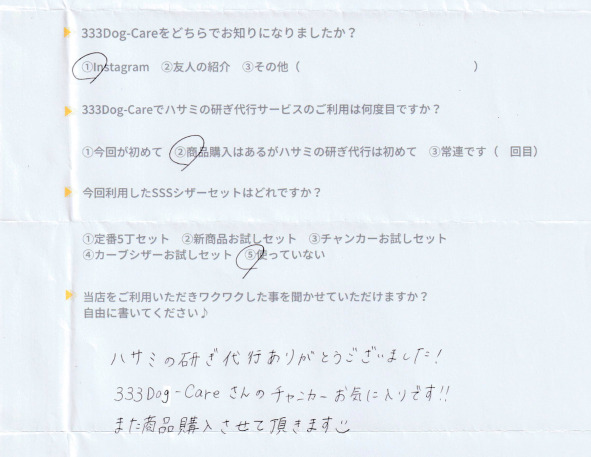 333Dog-Careをどちらでお知りになりましたか？
①Instagram ②友人の紹介 ③その他（ ）
333Dog-Careでハサミの研ぎ代行サービスのご利用は何度目ですか？
①今回が初めて ②商品購入はあるがハサミの研ぎ代行は初めて ③常連です（ 回目）
今回利用したSSSシザーセットはどれですか？
①定番5丁セット ②新商品お試しセット ③チャンカーお試しセット
④カーブシザーお試しセット ⑤使っていない
当店をご利用いただきワクワクした事を聞かせていただけますか？
自由に書いてください♪
ハサミの研ぎ代行ありがとうございました！
333Dog-Careさんのチャンカーお気に入りです!!
また商品購入させて頂きます